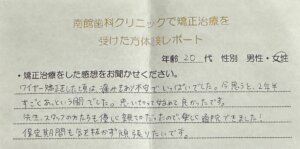 南館歯科クリニックで矯正治療を
受けた方体験レポート
年齢 20 代 性別 男性・女性
・矯正治療をした感想をお聞かせください。
ワイヤー矯正をした頃は、痛みもあり不安でいっぱいでした。今思うと、2年半
すごくあっという間でした。思いきってやってみて良かったです。
先生、スタッフの方たちも優しく親切だったので楽しく通院できました!
保定期間も気を抜かず頑張りたいです。